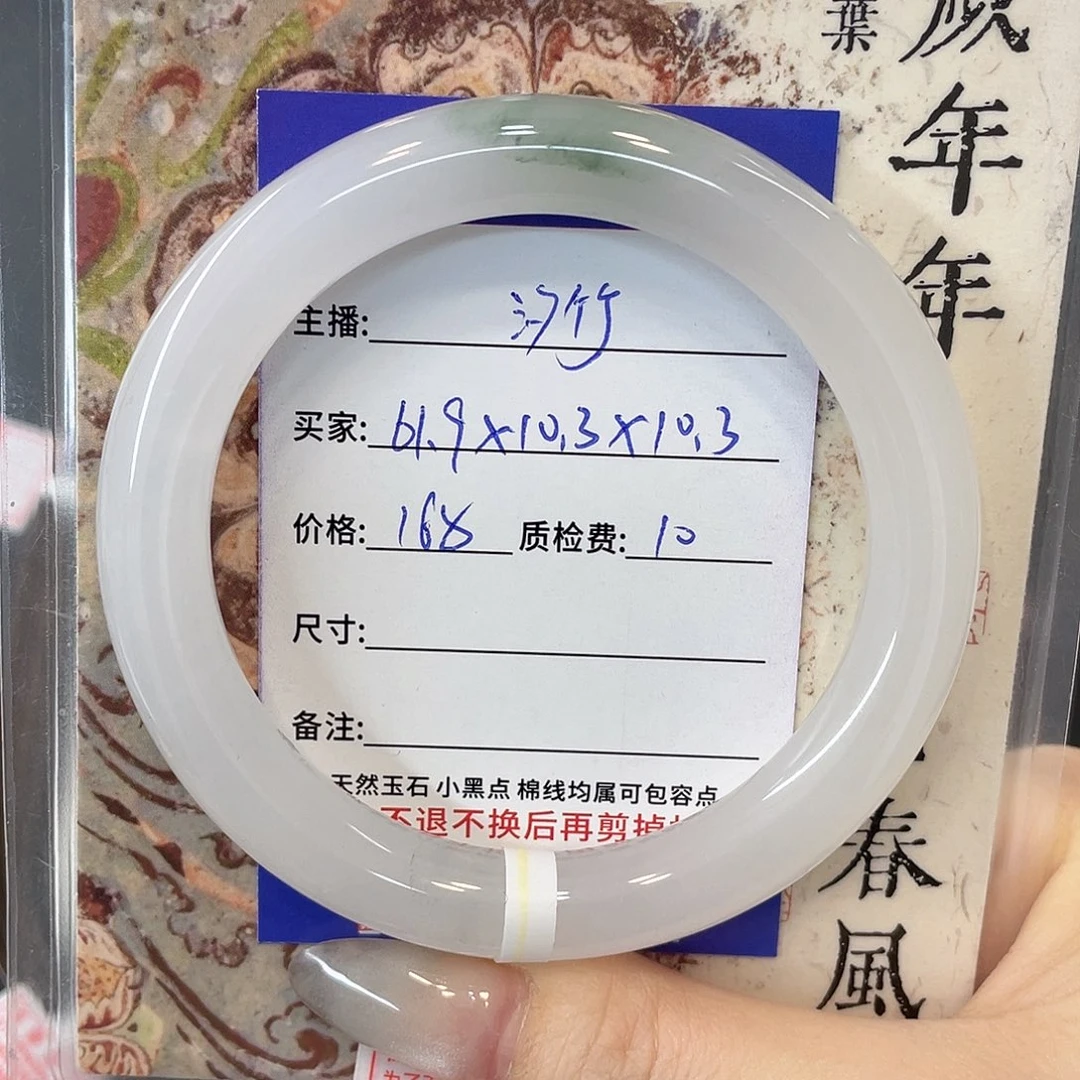 葉
年
年
春
風
主播:汐竹
买家:61.9×10.3×10.3
价格:168 质检费:10
尺寸:
备注:
天然玉石 小黑点 棉线均属可包容点
不退不换后再剪掉